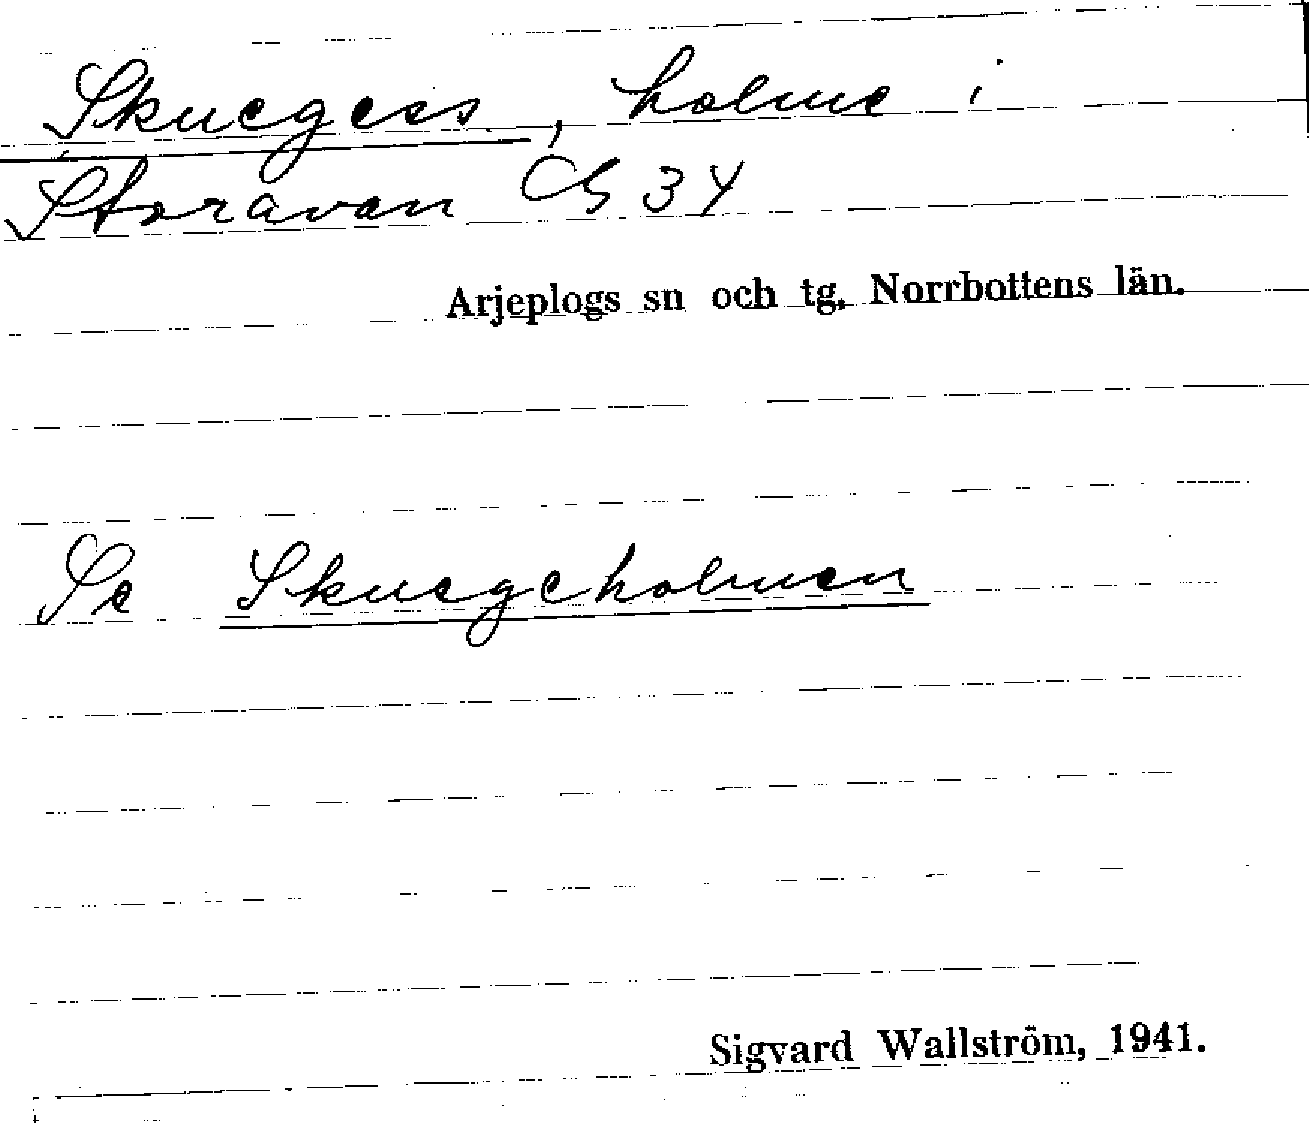 Skuegees, holme i
Storavan CG 34
Arjeplogs sn och tg, Norrbottens län.
Se Skuegeholmen
Sigvard Wallström, 1941.